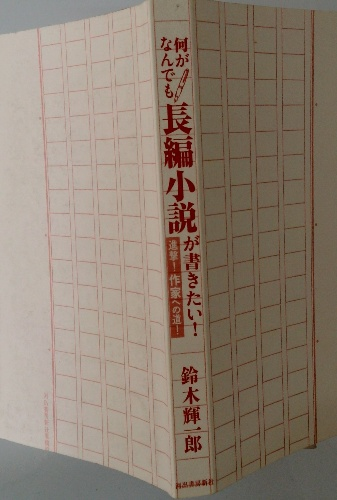 何が
なんでも
長編小説が書きたい!
進撃!作家への道!
鈴木輝一郎
河出書房新社